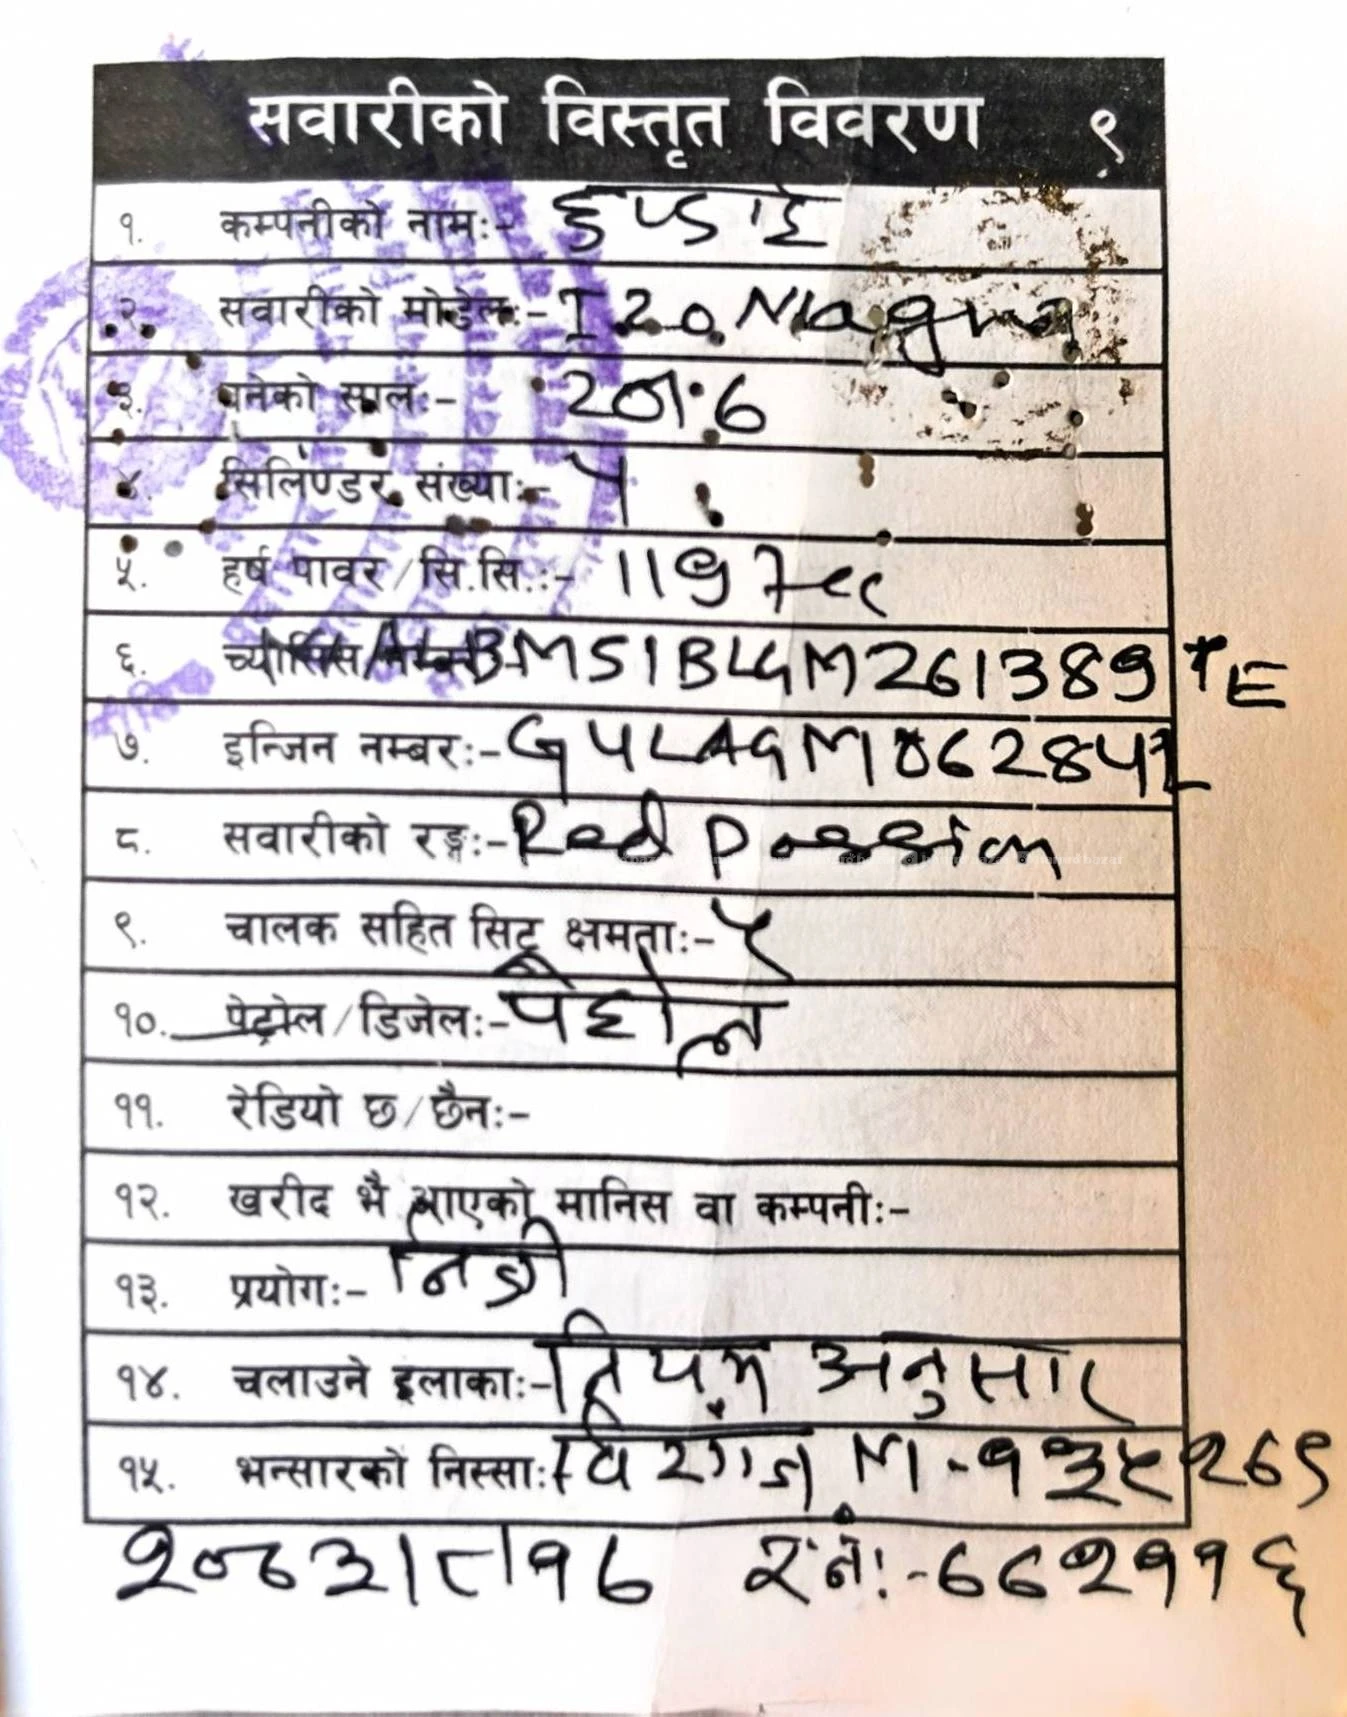 सवारीको विस्तृत विवरण ९
१. कम्पनीको नाम:- हुण्डाई
२. सवारीको मोडेल:- I 20 Magna
३. बनेको साल:- 2016
४. सिलिण्डर संख्या:- ४
५. हर्ष पावर/सि.सि.:- 1197cc
६. च्यासिस नम्बर MALBM51BLGM261389 *E
७. इन्जिन नम्बर:- G4LAGM062842
८. सवारीको रङ्ग:- Red Passion
९. चालक सहित सिट क्षमता:- ५
१०. पेट्रोल/डिजेल:- पेट्रोल
११. रेडियो छ/छैन:-
१२. खरीद भै आएको मानिस वा कम्पनी:-
१३. प्रयोग:- निजी
१४. चलाउने इलाका:- नियम अनुसार
१५. भन्सारको निस्सा:- विरगंज M-१३५२६९
२०७३।८।१६ र.नं:-६६२११६